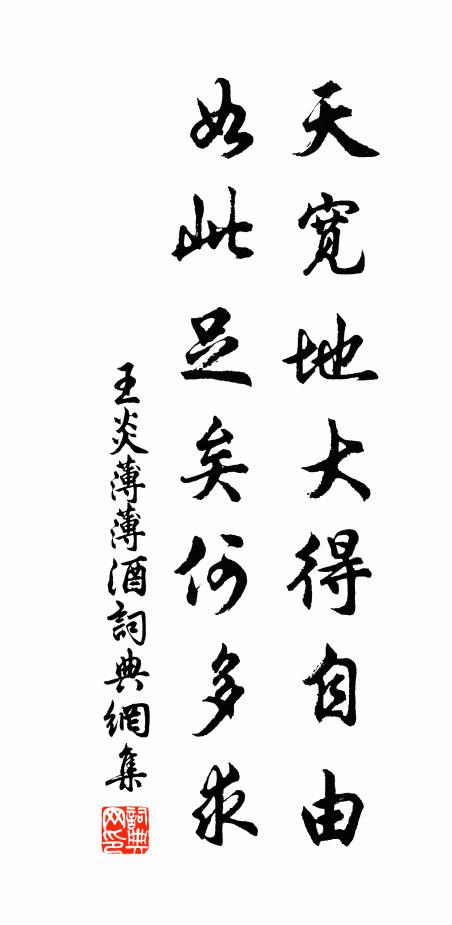 天寬地大得自由
如此足矣何多求
王炎薄薄酒詞典網集
詞典網印